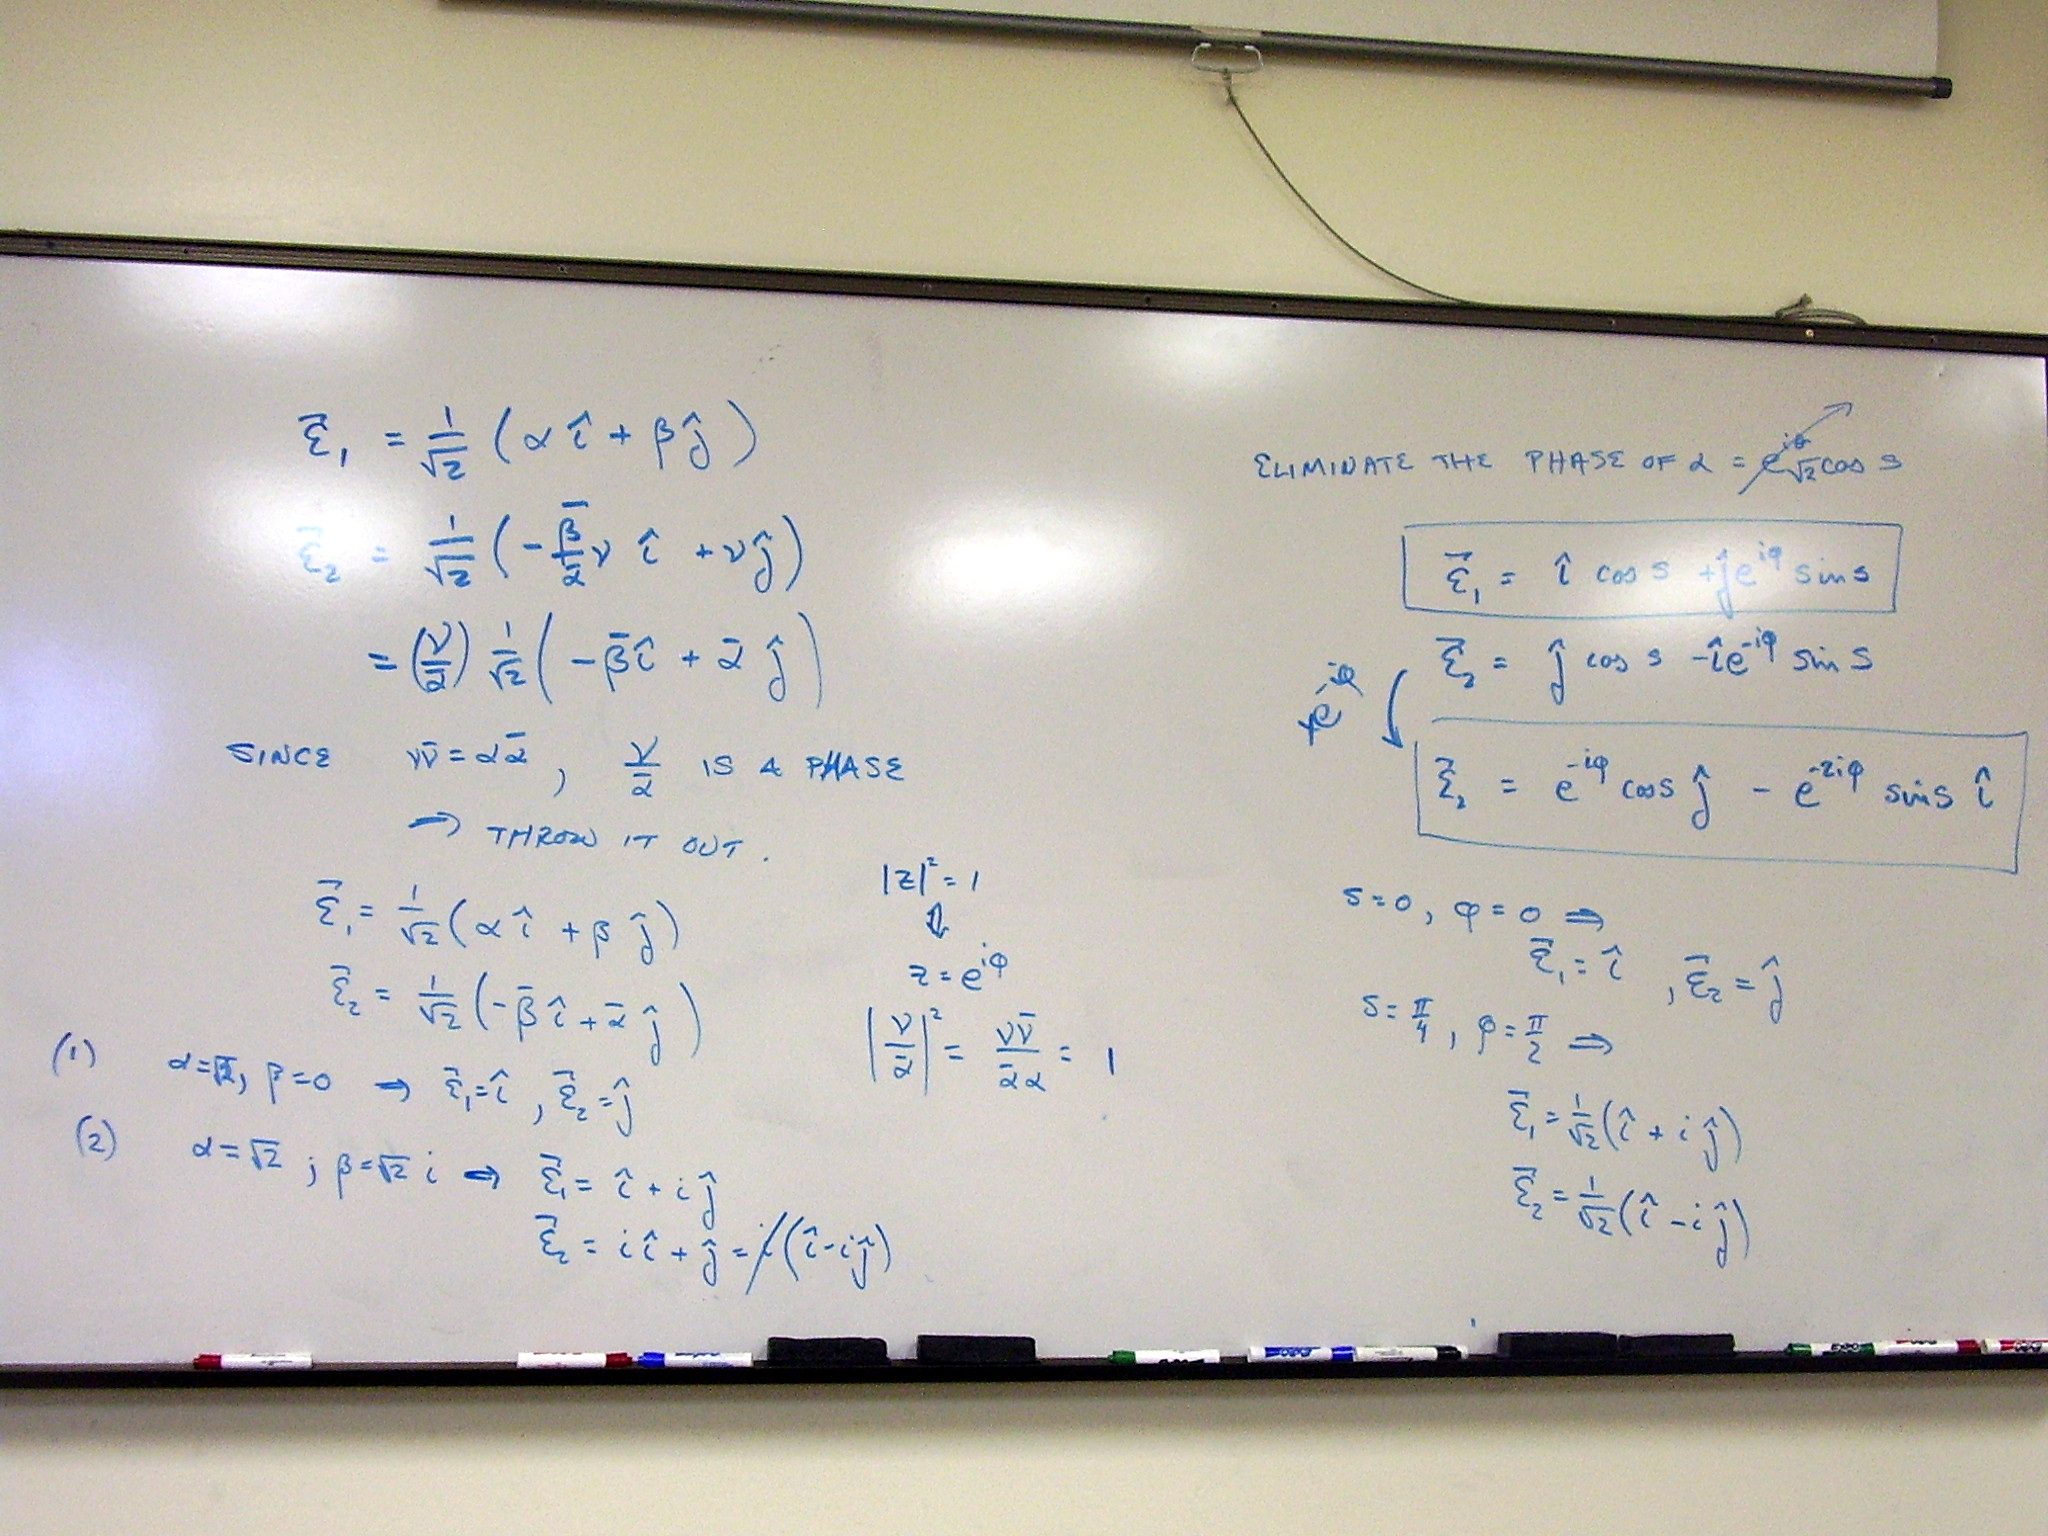 ε⃗₁ = 1/√2 (α î + β ĵ)
ε⃗₂ = 1/√2 (-β̄/ᾱ ν î + ν ĵ)
= (ν/ᾱ) 1/√2 (-β̄ î + ᾱ ĵ)
SINCE νν̄ = αᾱ, ν/ᾱ IS A PHASE
→ THROW IT OUT.
ε⃗₁ = 1/√2 (α î + β ĵ)
ε⃗₂ = 1/√2 (-β̄ î + ᾱ ĵ)
(1) α=√2, β=0 → ε⃗₁=î, ε⃗₂=ĵ
(2) α=√2 ; β=√2 i → ε⃗₁ = î + i ĵ
ε⃗₂ = i î + ĵ = i (î - i ĵ)
|z|² = 1
⇕
z = e^{iφ}
|ν/ᾱ|² = νν̄/ᾱα = 1
ELIMINATE THE PHASE OF α = e^{iθ} √2 cos s
ε⃗₁ = î cos s + ĵ e^{iφ} sin s
ε⃗₂ = ĵ cos s - î e^{-iφ} sin s
e^{-iφ}
ε⃗₂ = e^{-iφ} cos s ĵ - e^{-2iφ} sin s î
s=0, φ=0 ⇒
ε⃗₁ = î, ε⃗₂ = ĵ
s=π/4, φ=π/2 ⇒
ε⃗₁ = 1/√2 (î + i ĵ)
ε⃗₂ = 1/√2 (î - i ĵ)